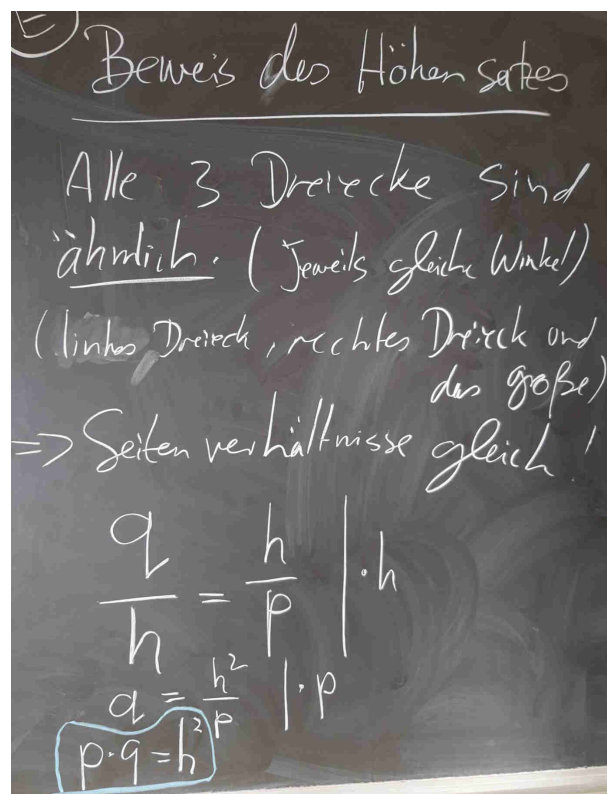 E
Beweis des Höhensatzes
Alle 3 Dreiecke sind
ähnlich. (Jeweils gleiche Winkel)
(linkes Dreieck, rechtes Dreieck und
das große)
=> Seitenverhältnisse gleich!
q/h = h/p | · h
q = h²/p | · p
p · q = h²